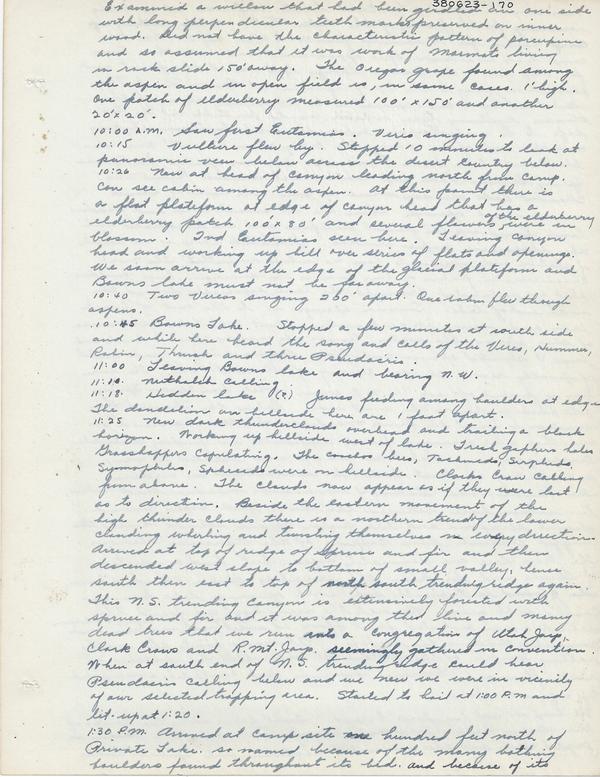 380623-170
Examined a willow that had been girdled on one side
with long perpendicular teeth marks preserved on inner
wood. Did not have the characteristic pattern of porcupine
and so assumed that it was work of Marmots living
in rock slide 150' away. The Oregon grape found among
the aspen and in open field is, in some cases. 1' high.
One patch of elderberry measured 100' x 150' and another
20' x 20'.
10:00 A.M. Saw first Eutamias. Vireo singing.
10:15 Vulture flew by. Stopped 10 minutes to look at
panoramic view below across the desert country below.
10:26 Now at head of canyon leading north from camp.
Can see cabin among the aspen. At this point there is
a flat platform at edge of canyon head that has a
elderberry patch 100' x 80' and several flowers of the elderberry were in
blossom. 2nd Eutamias seen here. Leaving canyon
head and working up hill over series of flats and openings.
We soon arrive at the edge of the glacial platform and
Bowns lake must not be far away.
10:40 Two Vireos singing 200' apart. One robin flew through
aspens.
10:45 Bowns Lake. Stopped a few minutes at south side
and while here heard the song and calls of the Vireo, Hummer,
Robin, Thrush and three Pseudacris.
11:00 Leaving Bowns lake and bearing N.W.
11:10. Nuthatch calling.
11:18. Hidden lake (?) Juncos feeding among boulders at edge
The dandelion on hillside here are 1 foot apart.
11:25 New dark thunderclouds overhead and trailing a black
horizon. Working up hillside west of lake. Fresh gophers holes
Grasshoppers copulating. The bees, Tachinids, Syrphids,
Symophiles, were on hillside. Clarks Crow calling
from above. The clouds now appear as if they were lost
as to direction. Beside the eastern movement of the
high thunder clouds there is a northern trend of the lower
clouding whirling and twisting themselves in every direction.
Arrived at top of ridge of spruce and fir and then
descended west slope to bottom of small valley, hence
south then east to top of north south trending ridge again.
This N.S. trending canyon is extensively forested with
spruce and fir and it was among the live and many
dead trees that we run into a congregation of Utah Jays,
Clark Crows and R.Mt. Jays. seemingly gathered in convention.
When at south end of N.S. trending ridge could hear
Pseudacris calling below and we knew we were in vicinity
of our selected trapping area. Started to hail at 1:00 P.M and
let-up at 1:20.
1:30 P.M. Arrived at camp site one hundred feet north of
Private Lake. so named because of the many bathing
boulders found throughout its bed. and because of its